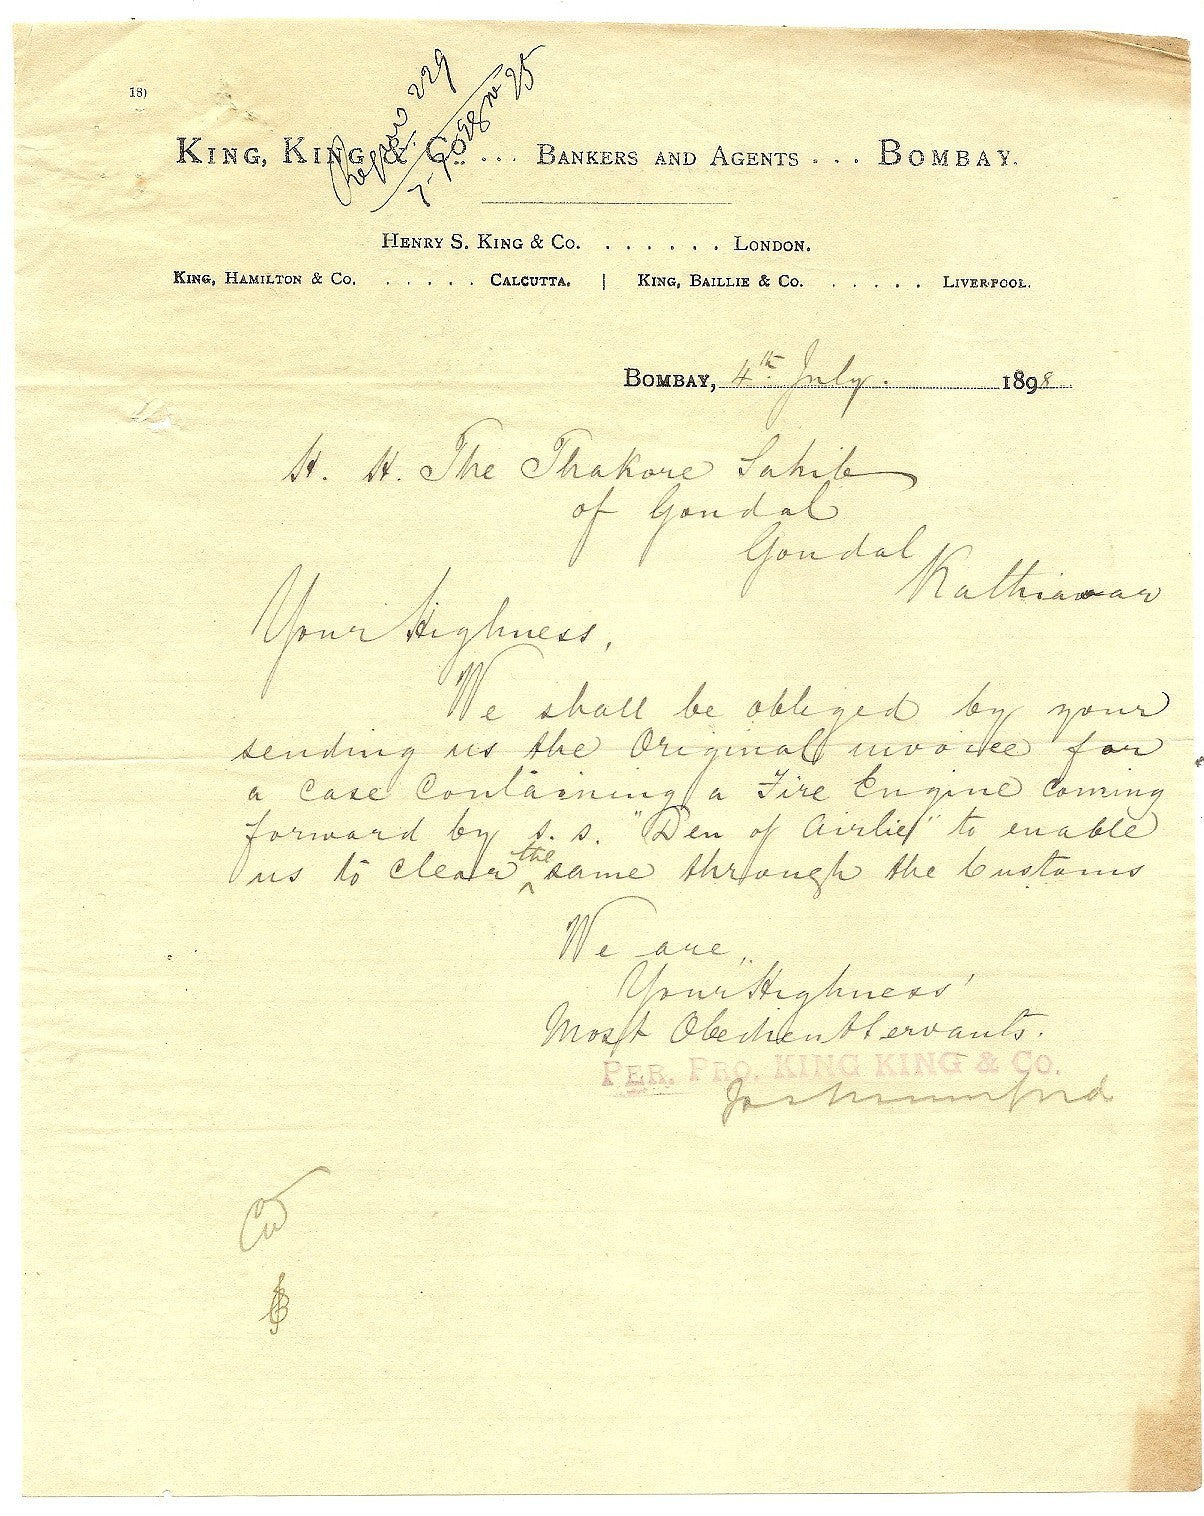 18)
229
7-7-98 no 25
KING, KING & Co. ... BANKERS AND AGENTS ... BOMBAY.
HENRY S. KING & CO. . . . . . . LONDON.
KING, HAMILTON & CO. . . . . . CALCUTTA. | KING, BAILLIE & CO. . . . . . LIVERPOOL.
BOMBAY, 4th July. 1898
H. H. The Thakore Sahib
of Gondal
Gondal
Kathiawar
Your Highness,
We shall be obliged by your
sending us the Original invoice for
a Case Containing a Fire Engine Coming
forward by s. s. "Den of Airlie" to enable
us to clear the same through the Customs
We are,
Your Highness'
Most Obedient Servants.
PER. PRO. KING KING & CO.